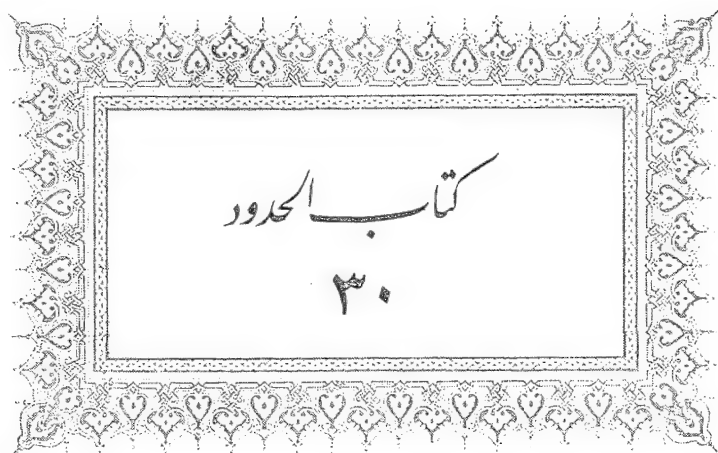 كتاب الحدود
٣٠